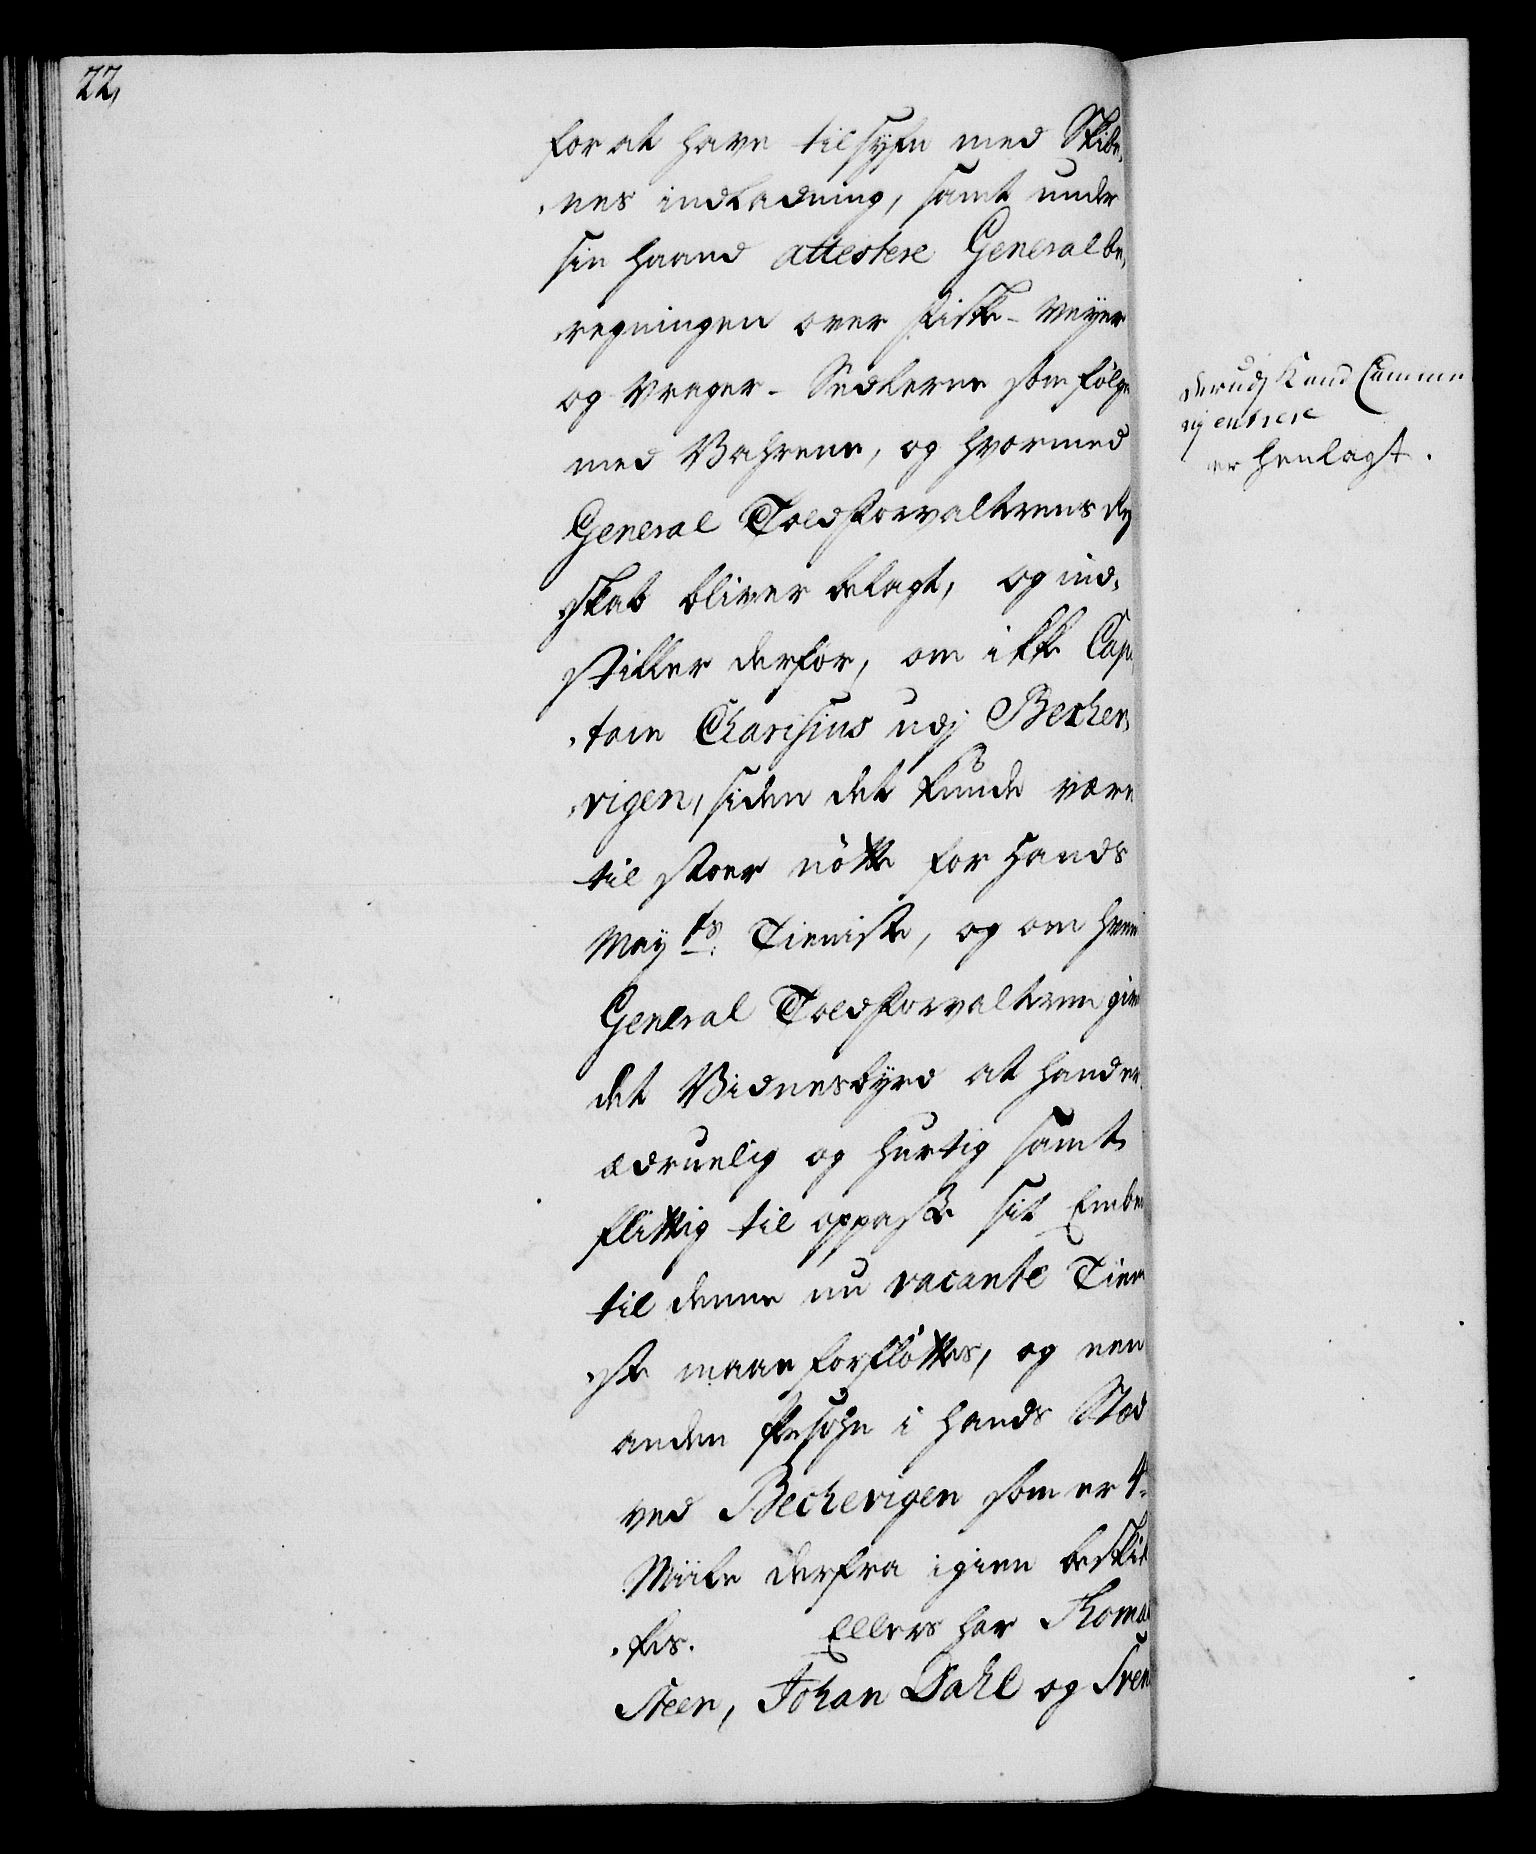 22,
for at have tilsyn med Skibe,
,nes indladning, samt under
sin Haand attestere General be,
,regningen over Fiske-Veyer
og Vrager-Sedlerne som følge
med Vahrene, og hvormed
General Toldforvalterens Reg
,skab bliver belagt, og ind,
stiller derfor, om ikke Cap,
,tain Charisius udj Becher,
,vigen, siden det kunde være
til stoer nötte for Hands
Mayts: Tieniste, og om hvem
General Toldforvalteren giver
det Vidnesbyrd at hand er
ædruelig og hurtig samt
flittig til oppasse sit Embe
til denne nu vacante Tiene
,ste maae forflöttes, og een
anden Persohn i Hands Stæd
ved Bechervigen som er 4
Miile derfra igien beskik
,kes. Ellers har Thomas
Steen, Johan Dahl og Sven
derudj Rend Cammer
er henlagt.